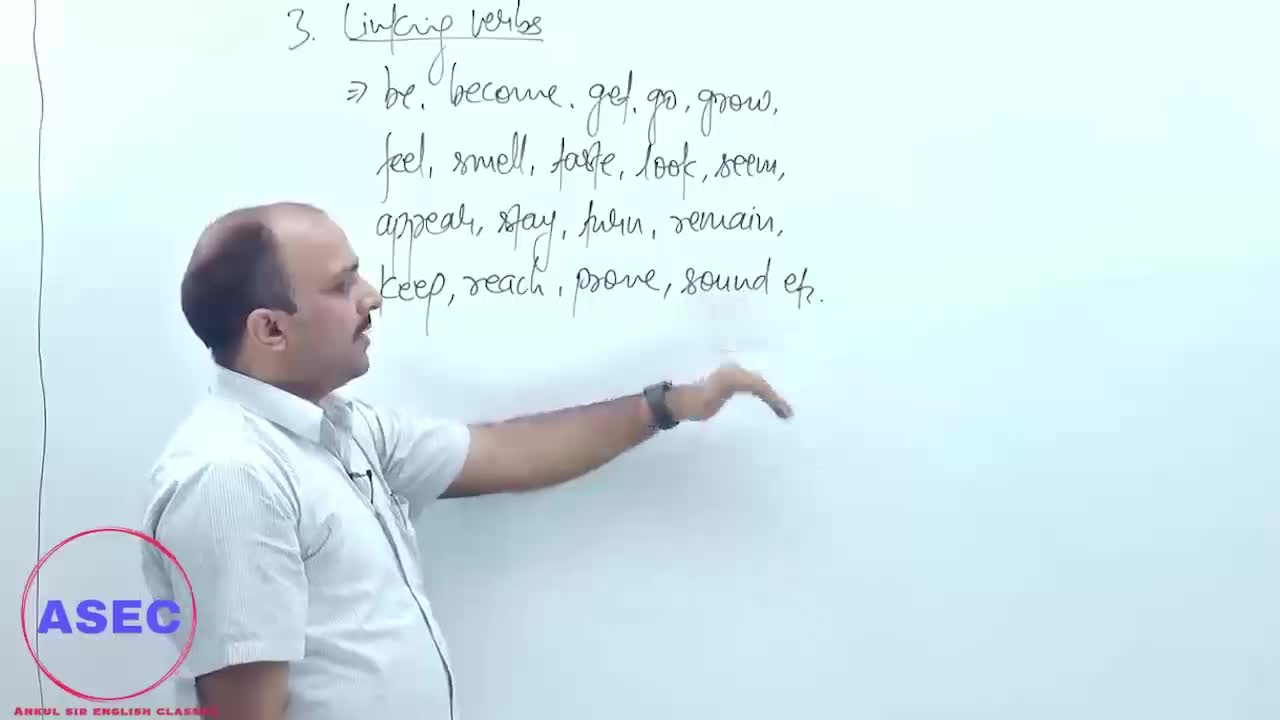 3. Linking verbs
⇒ be, become, get, go, grow,
feel, smell, taste, look, seem,
appear, stay, turn, remain,
keep, reach, prove, sound etc.
ASEC
ANKUL SIR ENGLISH CLASSES